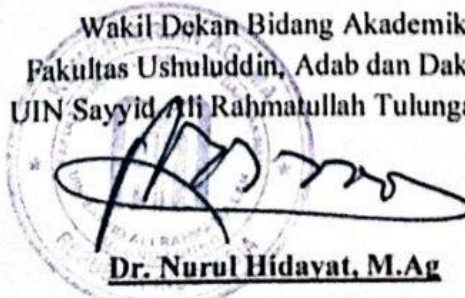 Wakil Dekan Bidang Akademik
Fakultas Ushuluddin, Adab dan Dak
UIN Sayyid Ali Rahmatullah Tulunga
Dr. Nurul Hidayat, M.Ag